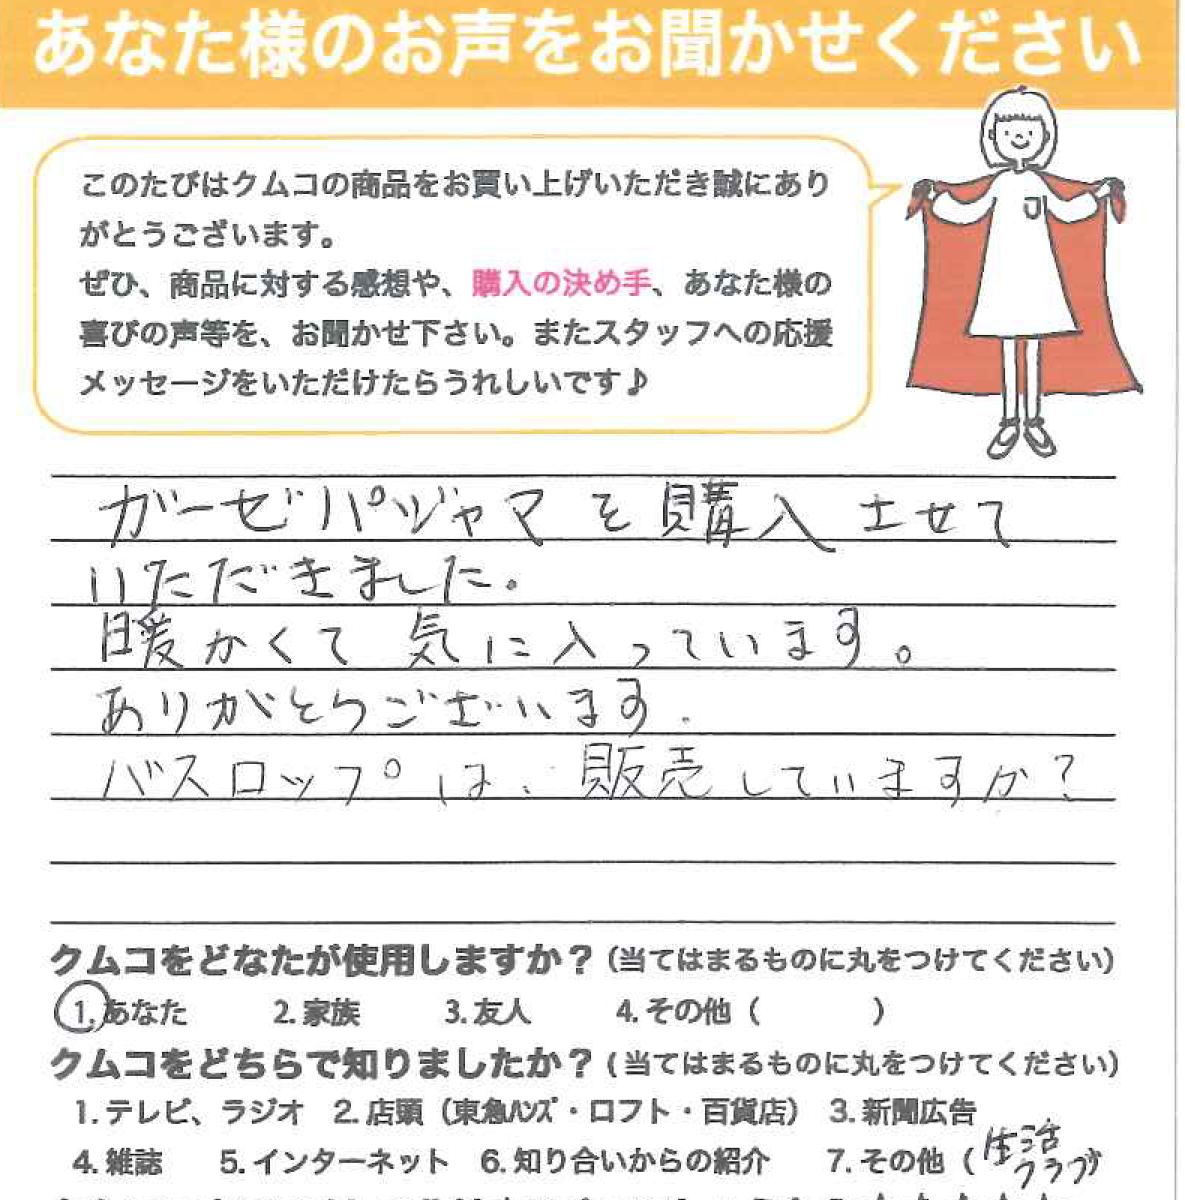 あなた様のお声をお聞かせください
このたびはクムコの商品をお買い上げいただき誠にあり
がとうございます。
ぜひ、商品に対する感想や、購入の決め手、あなた様の
喜びの声等を、お聞かせ下さい。またスタッフへの応援
メッセージをいただけたらうれしいです♪
ガーゼパジャマを購入させて
いただきました。
暖かくて気に入っています。
ありがとうございます.
バスロップは、販売していますか?
クムコをどなたが使用しますか?(当てはまるものに丸をつけてください)
1.あなた 2.家族 3.友人 4.その他( )
クムコをどちらで知りましたか?(当てはまるものに丸をつけてください)
1.テレビ、ラジオ 2.店頭(東急ハンズ・ロフト・百貨店) 3.新聞広告
4.雑誌 5.インターネット 6.知り合いからの紹介 7.その他(生活クラブ)